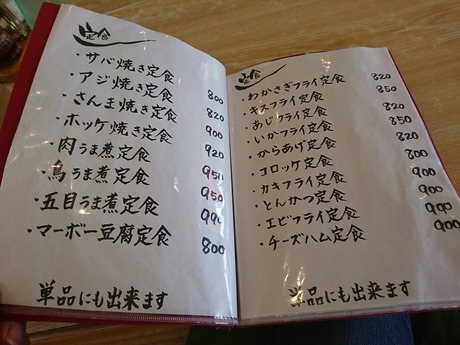 定食
・サバ焼き定食 800
・アジ焼き定食 820
・さんま焼き定食 900
・ホッケ焼き定食 920
・肉うま煮定食 950
・鳥うま煮定食 950
・五目うま煮定食 990
・マーボー豆腐定食 800
単品にも出来ます
定食
・わかさぎフライ定食 820
・キスフライ定食 850
・あじフライ定食 820
・いかフライ定食 850
・からあげ定食 820
・コロッケ定食 800
・カキフライ定食 900
・とんかつ定食 900
・エビフライ定食 900
・チーズハム定食 900
単品にも出来ます